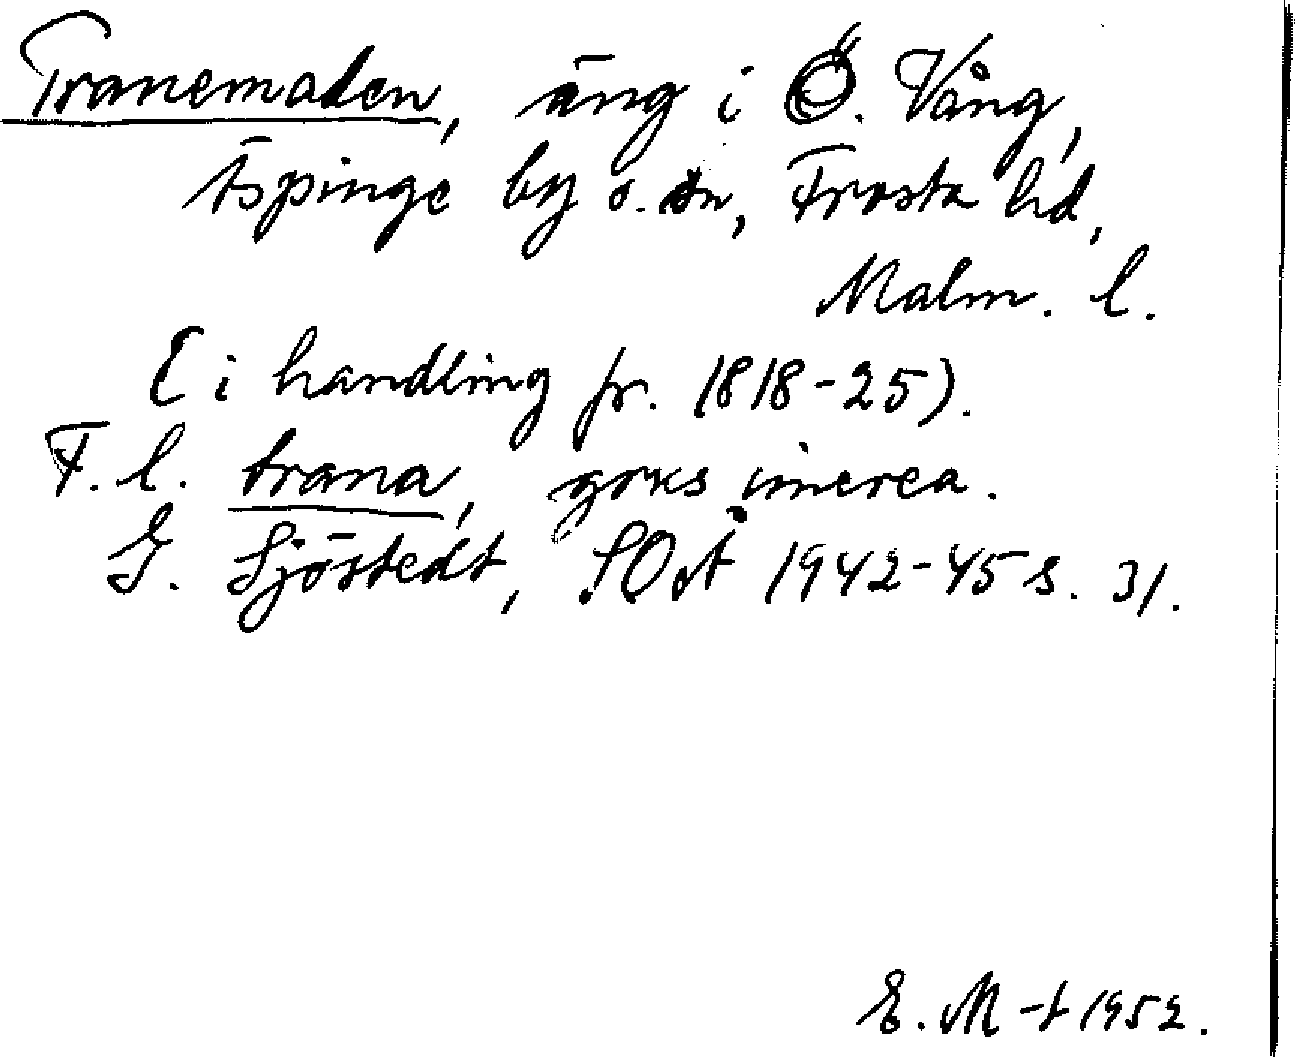 Tranemaden, äng i Ö. Vång,
Äspinge by o. sn, Frosta hd,
Malm. l.
(i handling fr. 1818-25).
F. l. trana, grus cinerea.
G. Sjöstedt, SOÅ 1942-45 s. 31.
E. M-t 1952.